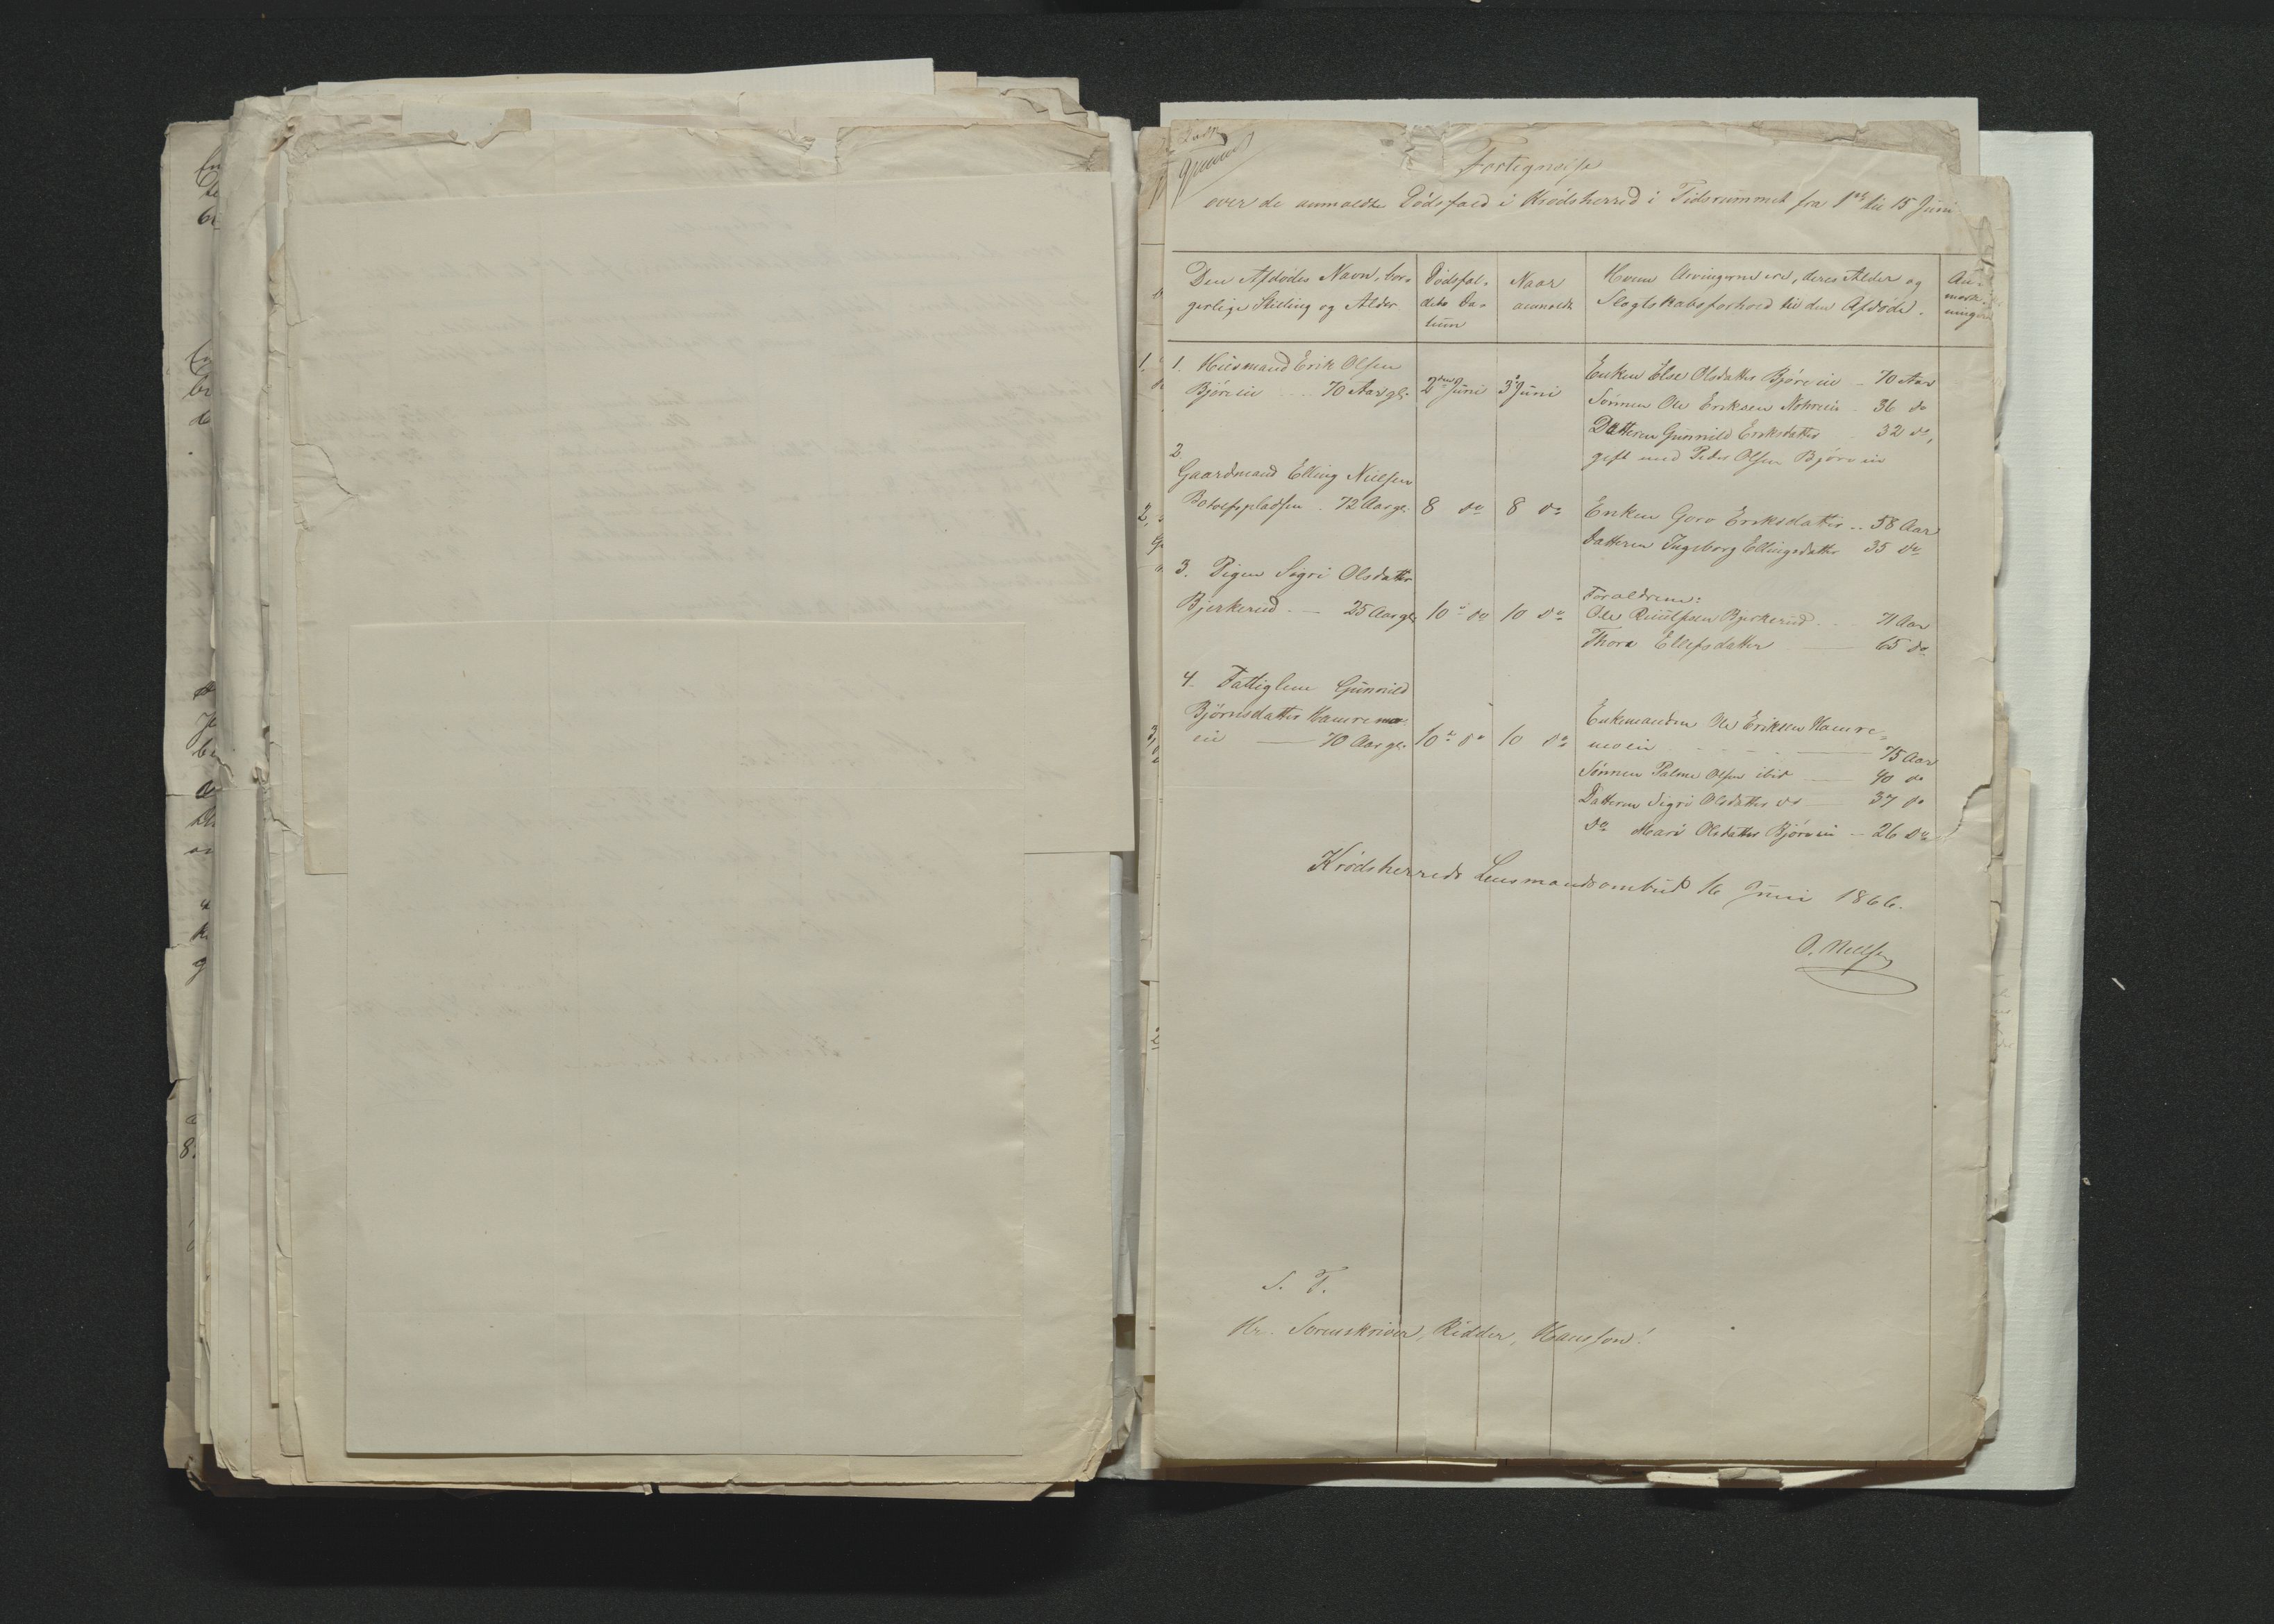 Fortegnelse
over de anmeldte Dödsfald i Krödsherred i Tidsrummet fra 1ste til 15 Juni
Den Afdødes Navn, bor-
gerlige Stilling og Alder.
Dödsfal-
dets Da-
tum
Naar
anmeldt
Hvem Arvingerne ere, deres Alder og
Slægtskabsforhold til den Afdöde.
An-
mærk-
ninger
1. Huusmand Erik Olsen
Björeiei 70 Aar gl.
2den Juni
3die Juni
Enken Else Olsdatter Björeiei - 70 Aar
Sønnen Ole Eriksen 36 do
Datteren Gunnild Eriksdatter 32 do,
gift med Peder Olsen Björeiei
2.
Gaardmand Elling Nielsen
Botolfspladsen 72 Aar gl.
8 do
8 do
Enken Goro Eriksdatter .. 58 Aar
Datteren Ingeborg Ellingsdatter 35 do
3. Pigen Sigri Olsdatter
Bjerkerud — 25 Aar gl.
10 do
10 do
Forældrene:
Ole Bjerkerud 71 Aar
Thora Ellefsdatter — 65 do
4. Fattiglem Gunnild
Björnsdatter Hamremo-
ei — 70 Aar gl.
10 do
10 do
Enkemanden Ole Eriksen Hamre-
moei — 75 Aar
Sønnen Palme Olsen ibid — 40 do
Datteren Sigri Olsdatter do — 37 do
do Mari Olsdatter Björeiei - 26 do
Krödsherreds Lensmandsombud 16 Juni 1866.
S. T.
Hr. Sorenskriver, Ridder, Hansson!